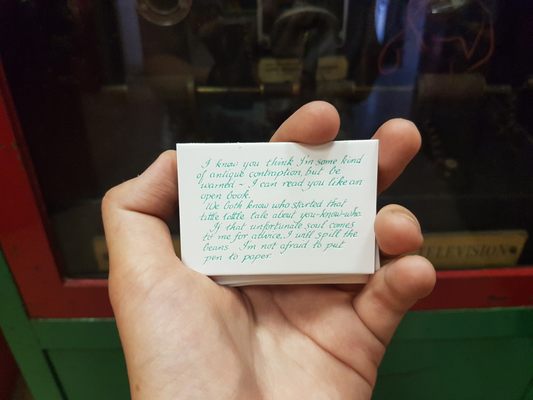 I know you think I'm some kind
of antique contraption, but be
warned ~ I can read you like an
open book.
We both know who started that
little tattle tale about you-know-who.
If that unfortunate soul comes
to me for advice, I will spill the
beans. I'm not afraid to put
pen to paper.
TELEVISION